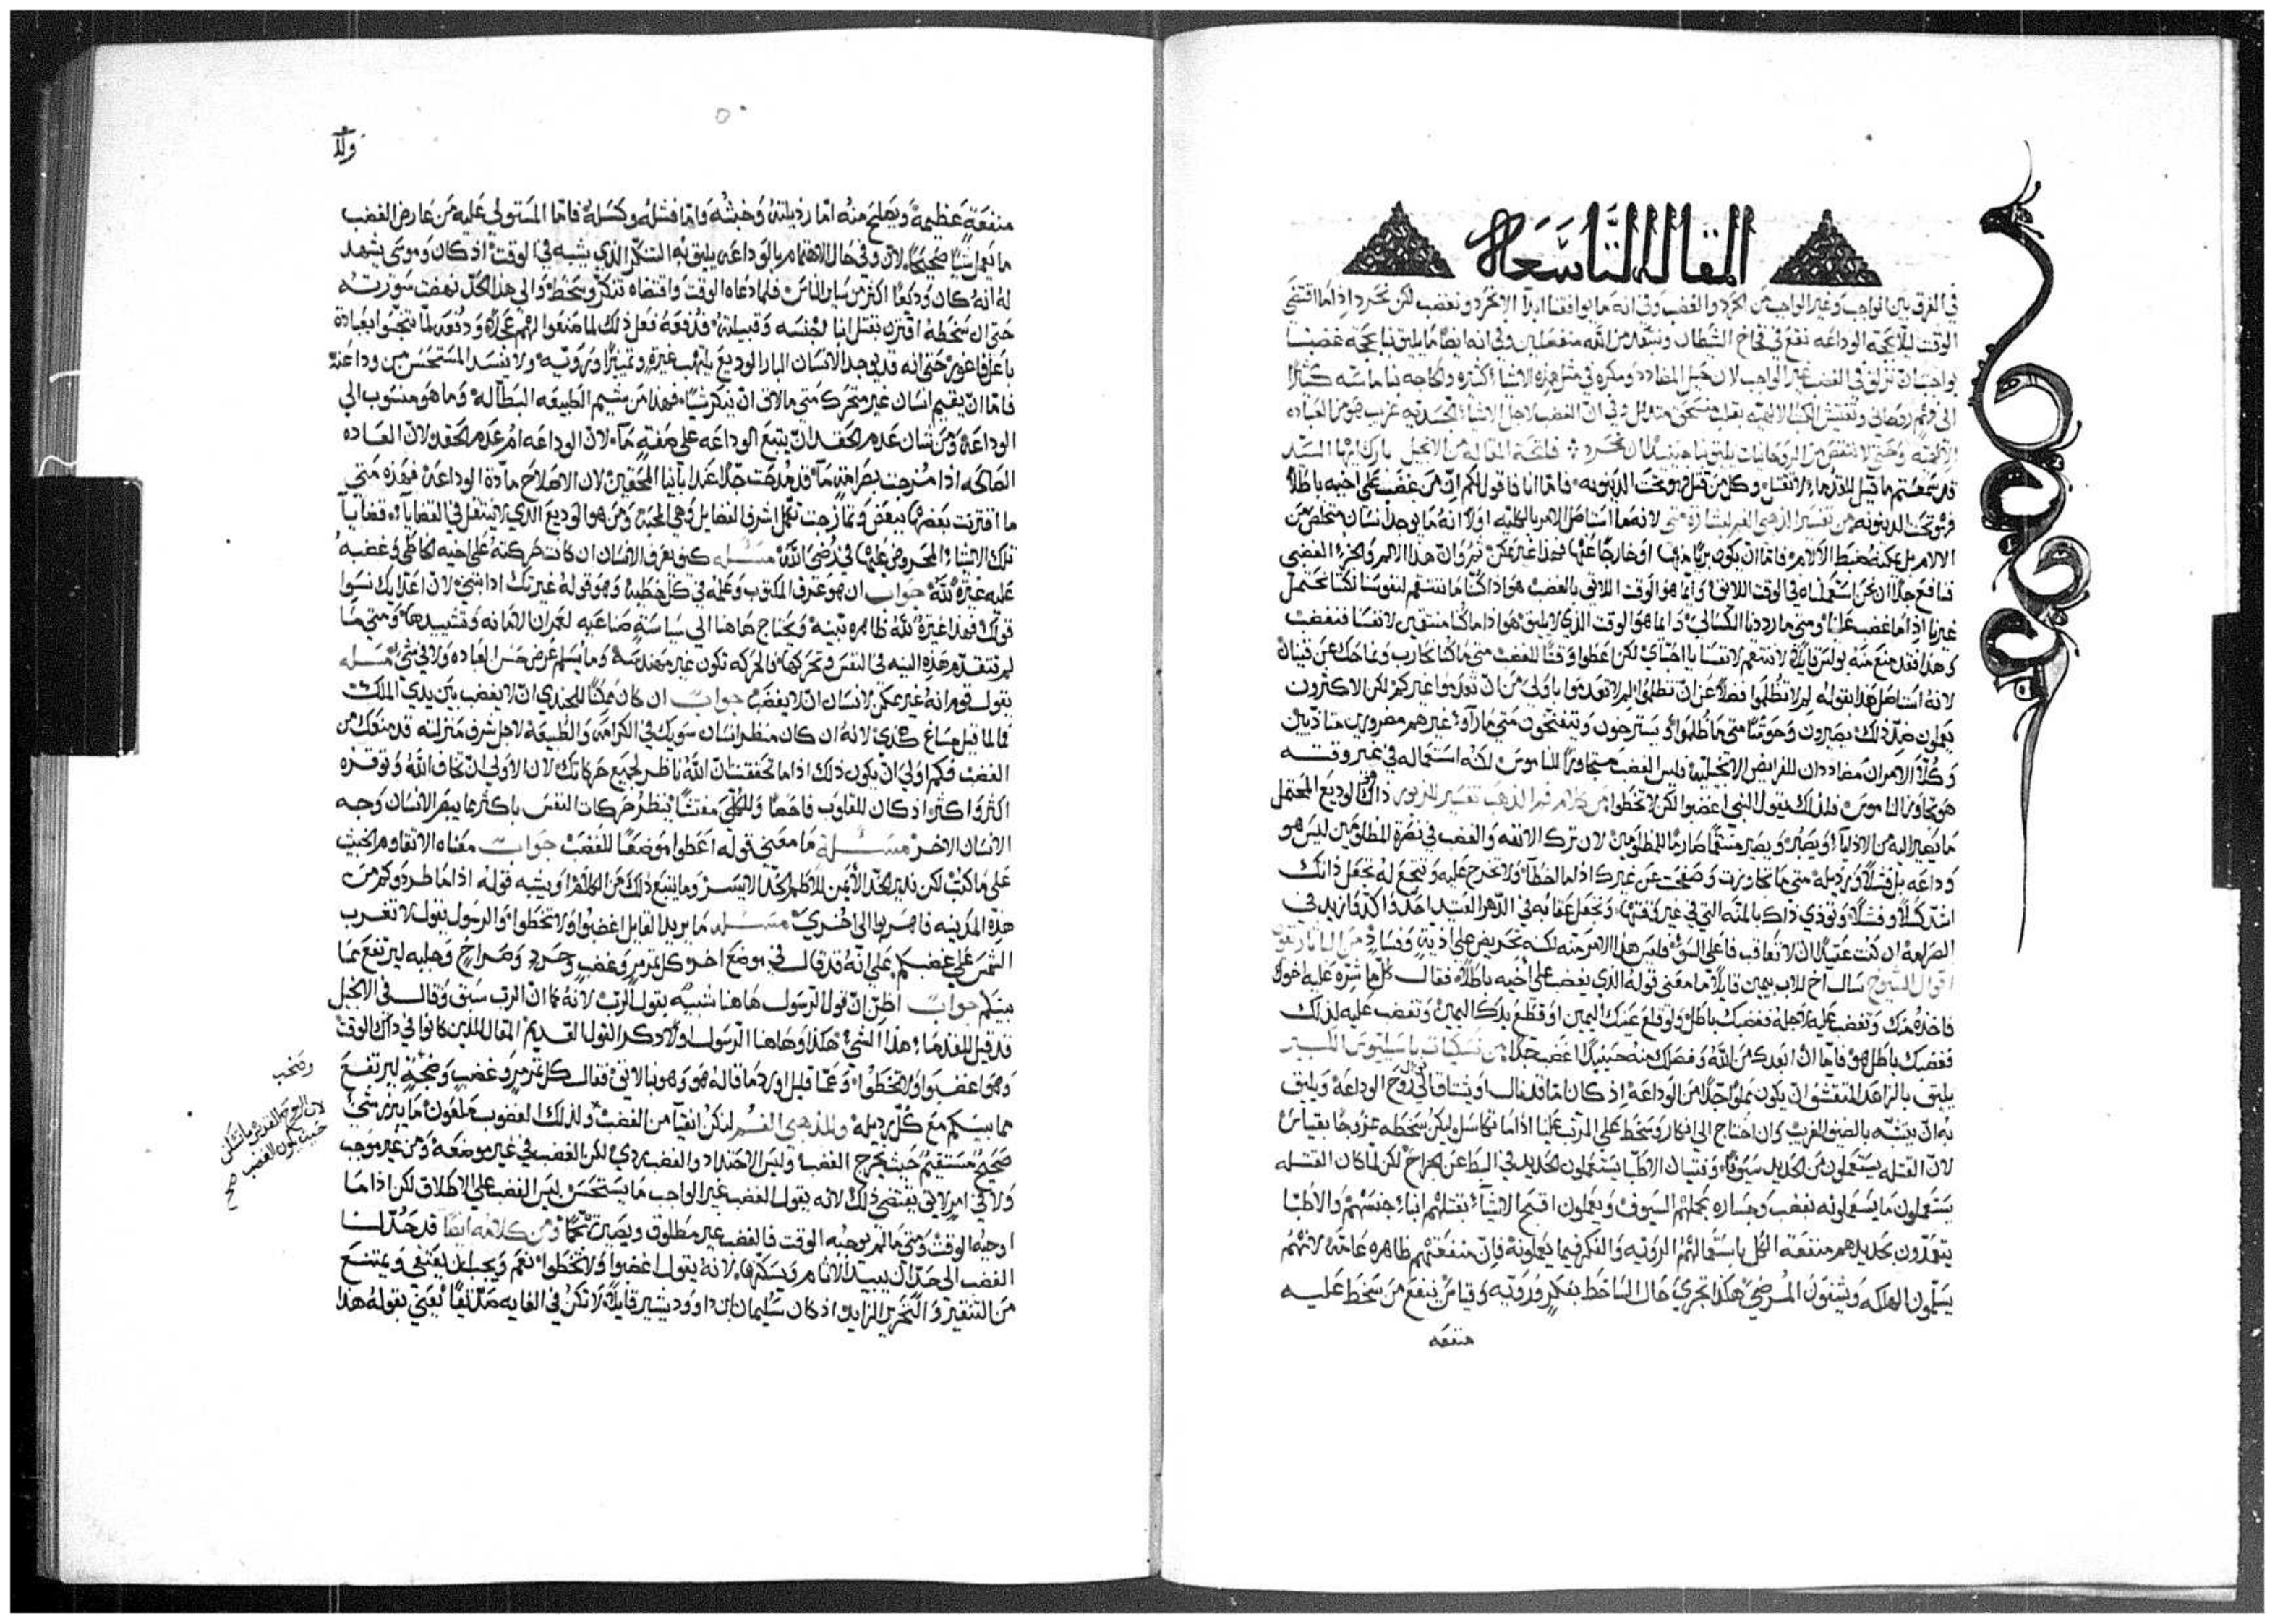 المقاله التاسعه
في الفرق بين الواجب وغير الواجب من الحرد والغضب وفي انه ما يوافقنا ابدًا الا نحرد ونغضب لكن نحرد اذا ما اقتضى
الوقت ليلا بحجة الوداعه نقع في فخاخ الشيطان من الله منفعلين وفي انه ايضًا ما يليق بنا بحجة غضبنا
الواجب ان نزلق في الغضب غير الواجب لان حيل المضادد ومكره في مثل هذه الاشياء كثيره ولحاجه بنا ماسّه كثيرًا
الى فهم روحاني وتفتيش الكتب الالهيه بقلب منسحق متذلل وفي ان الغضب لاجل الاشياء الجسديه غريب هو من العباده
الالهيّه وحتى لا ننقص من الروحانيات يليق بنا حينيذٍ ان نحرد فاتحة المقاله من الانجيل بارك ايها السيد
قد سمعتم ما قيل للقدماء لا تقتل وكل من قتل وجبت الدينونه فاما انا فاقول لكم ان من غضب على اخيه باطلًا
فوجبت الدينونه من تفسير الذهبي الفم لبشارة متى لانه ما استاصل الامر بالكليه اولًا انه ما يوجد انسان متخلص من
الالام بل يمكنه ضبط الالام فاما ان يكون بريًا منها او خارجًا عنها فهذا غير ممكن ثم وان هذا الالم والجزء الغضبي
نافع جدًا ان نحن استعملناه في الوقت اللايق وانما هو الوقت اللايق بالغضب هو اذا كنا ما ننتقم لنفوسنا لكنا نحتمل
غيرنا اذا ما غضب علينا ومتى ما رددنا الكسالى وانما هو الوقت الذي لا يليق هو اذا ما كنا منتقمين لانفسنا فنغضب
وهذا فقد منع منه بولس قايلًا لا تنتقموا لانفسكم يا احباي لكن اعطوا وقتًا للغضب متى ما كنا نحارب ونماحك عن قنيان
لانه استاصل هذا بقوله لم لا تُظلموا فضلًا عن ان تظلموا لم لا تعدموا باولى من ان تعدموا غيركم لكن الاكثرون
يعملون ضد ذلك يصيرون وحوشًا متى ما ظلموا ويسترخون وينفتحون متى ما رآوا غيرهم مضرورين متاذيين
وكلا الامران مضاددان للفرايض الانجيليه وليس الغضب متجاوزًا للناموس لكنه استعماله في غير وقته
هو تجاوز الناموس فلذلك يقول النبي اغضبوا لكن لا تخطوا من كلام فم الذهب تفسير المزبور ذاك الوديع المحتمل
ما يصير اليه من الاذيا ويصبر ويصير منتقمًا صارمًا للمظلومين لان ترك الانفه والغضب في نصرة المظلومين ليس هو
وداعه بل فشلًا ورذيله متى ما تجاوزت وصفحت عن غيرك اذا ما اخطأ ولا تحرج عليه وتتجع له تجعل ذاتك
اشد كسلًا وفشلًا وتوذي ذاك بالمنّه التي في غير وقتها وتجعل عقابه في الدهر العتيد احد واكثر وازيد في
الصرامه ان كنت عتيدًا ان لا تعاقب فاعل السوء فليس هذا الامر منه لكنه تحريض على اذيةٍ وفسادٍ
اقوال الشيوخ سال اخ للاب بيمين قايلًا ما معنى قوله الذي يغضب على اخيه باطلًا فقال كلما شره عليه اخوك
فاخذه منك وتغضب عليه لاجله فغضبك باطل ولو قلع عينك اليمين او قطع يدك اليمين وتغضب عليه لذلك
فغضبك باطل هو فاما ان ابعدك من الله وفصلك منه حينيذٍ اغضب جدًا من نسكيات باسيليوس الكبير
يليق بالزاهد المتقشف ان يكون مملوًا جدًا من الوداعه اذ كان اما قد نال او يشتاق الى نوال روح الوداعة ويليق
به ان يتشبه بالضيف الغريب وان احتاج الى انكار وسخط على المرتب علينا اذا ما تكاسل ليكن سخطه ممزوجًا بقياس
لان القتله يستعملون من الحديد سيوفًا وفتيان الاطبا يستعملون الحديد في البط عن الجراح لكن لما كان القتله
يستعملون ما يستعملونه بغضب وجساره بحملهم السيوف ويعملون اقبح الاشيآء بقتلهم ابناء جنسهم والاطبا
يتعمدون بحديدهم منفعة الكل باستعمالهم الرويّه والفكر فيما يعملونه فان منفعتهم ظاهره عامة لانهم
يسلمون الهلكه ويشفون المرضى هكذا تجري حال الساخط بفكرٍ ورويّه وقياس ينفع من سخط عليه
منفعه
منفعةٍ عظيمةً ويصلح منه اما رذيلته وخبثه واما فشله وكسله فاما المستولي عليه من عارض الغضب
ما يعمل شيًا صحيحًا لان وفي حال الاهتمام بالوداعه يليق به التنكر الذي يشبه في الوقت اذ كان وموسى يشهد
له انه كان وديعًا اكثر من ساير الناس فلما دعاه الوقت واقتضاه تنكّر وسخط والى هذا الحد نهضت سورته
حتى ان سخطه اقترن بقتل ابنا لجنسه وقبيلته فدفعة فعل ذلك لما صنعوا لهم عجلًا ودفعة لما تنجّسوا بعبادة
باعل فاغور حتى انه قد يوجد الانسان البار الوديع يلتهب غيرةٍ وتمييزًا ورويّه ولا يفسد المستحسن من وداعته
فاما ان يقيم انسان غير متحرك متى ما لاق ان ينكر شيًا فهذا من شيم الطبيعه البطّاله وما هو منسوب الى
الوداعة ومن شان عدم الحقد ان يتبع الوداعه على صفةٍ ما لان الوداعه ام عدم الحقد لان العاده
الصالحه اذا مُزجت بصرامةٍ ما قد مُدحت جدًا عند آبانا المحقين لان الاصلاح مادة الوداعة فهذه متى
ما اقترنت بعضها ببعض وتمازجت تكمل اشرف الفضايل وهي المحبة ومن هو الوديع الذي لا ينتقل في القضايا
تلك الاشيا المحروص عليها في رضى الله مسئله كيف يعرف الانسان ان كانت حركته على اخيه الخاطي وغضبه
عليه غيرة لله جواب ان هو عرف المكتوب وعمله في كل خطيه وهو قوله غيرتك اذابتني لان اعدايك نسوا
قولك فهذا غيرة لله ظاهره تبينه ويحتاج هاهنا الى سياسةٍ صناعيه لعمران الامانه وتشييدها ومتى ما
لم تتقدم هذه النيه في النفس وتحركها فالحركه تكون غير مهندسه وما يسلم غرض حسن العباده ولا في شيء مسله
يقول قوم انه غير ممكن لانسان ان لا يغضب جواب ان كان ممكنًا للجندي ان لا يغضب بين يدي الملك
فالما قيل مساغ كذي لانه ان كان منظر انسان سويك في الكرامه والطبيعه لاجل شرف منزلته قد منعك من
الغضب فكم اولى ان يكون ذلك اذا ما تحققت ان الله ناظر لجميع حركاتك لان الاولى ان تخاف الله وتوقره
اكثر واكثر اذ كان للقلوب فاحصًا وللكلى مفتشًا ينظر حركات النفس باكثر ما يبصر الانسان وجه
الانسان الاخر مسئله ما معنى قوله اعطوا موضعًا للغضب جواب معناه الا تقاوم الخبيث
على ما كتب لكن تدير الخدّ الايمن للاطم الخدّ الايسر وما يتبع ذلك من الكلام او يشبه قوله اذا ما طردوكم من
هذه المدينه فاهربوا الى اخرى مسئله ما يريد القايل اغضبوا ولا تخطوا والرسول يقول لا تغرب
الشمس على غضبكم على انه قد قال في موضع اخر كل تمرمرٍ وغضبٍ وحردٍ وصراخٍ وجلبه ليرتفع مما
بينكم جواب اظن ان قول الرسول هاهنا شبيه بقول الرب لانه كما ان الرب سبق وقال في الانجيل
قد قيل للقدماء هذا الشيء هكذا وهاهنا الرسول اولًا ذكر القول القديم المقال للذين كانوا في ذاك الوقت
وهو اغضبوا ولا تخطوا وعما قليل اورد ما قاله هو وهو بنا لايق فقال كل تمرمرٍ وغضبٍ وضجةٍ ليرتفع
مما بينكم مع كل رذيله وللذهبي الفم لنكن انقيآ من الغضب ولذلك الغضوب ملعون ما يبرز شيء
صحيح مستقيم حيث يخرج الغضب وليس الاحتداد والغضب ردي لكن الغضب في غير موضعه ومن غير موجب
ولا في امرٍ لايق يقتضي ذلك لانه يقول الغضب غير الواجب ما يستحسن ليس الغضب على الاطلاق لكن اذا ما
اوجبه الوقت ومتى ما لم يوجبه الوقت فالغضب غير مطلوق ومن كلامه ايضًا قد حُدّ لنا
الغضب الى حدّ ان يبيد الاثام ويسكنها لانه يقول اغضبوا ولا تخطوا نعم ويجب ان يعتفي ويمتنع
من التنقير والتحرير الزايد اذ كان سليمان بن داوود يشير قايلًا لا تكن في الغايه صدّيقًا يعني بقوله هذا
وصخب
حيث يكون الغضب صح